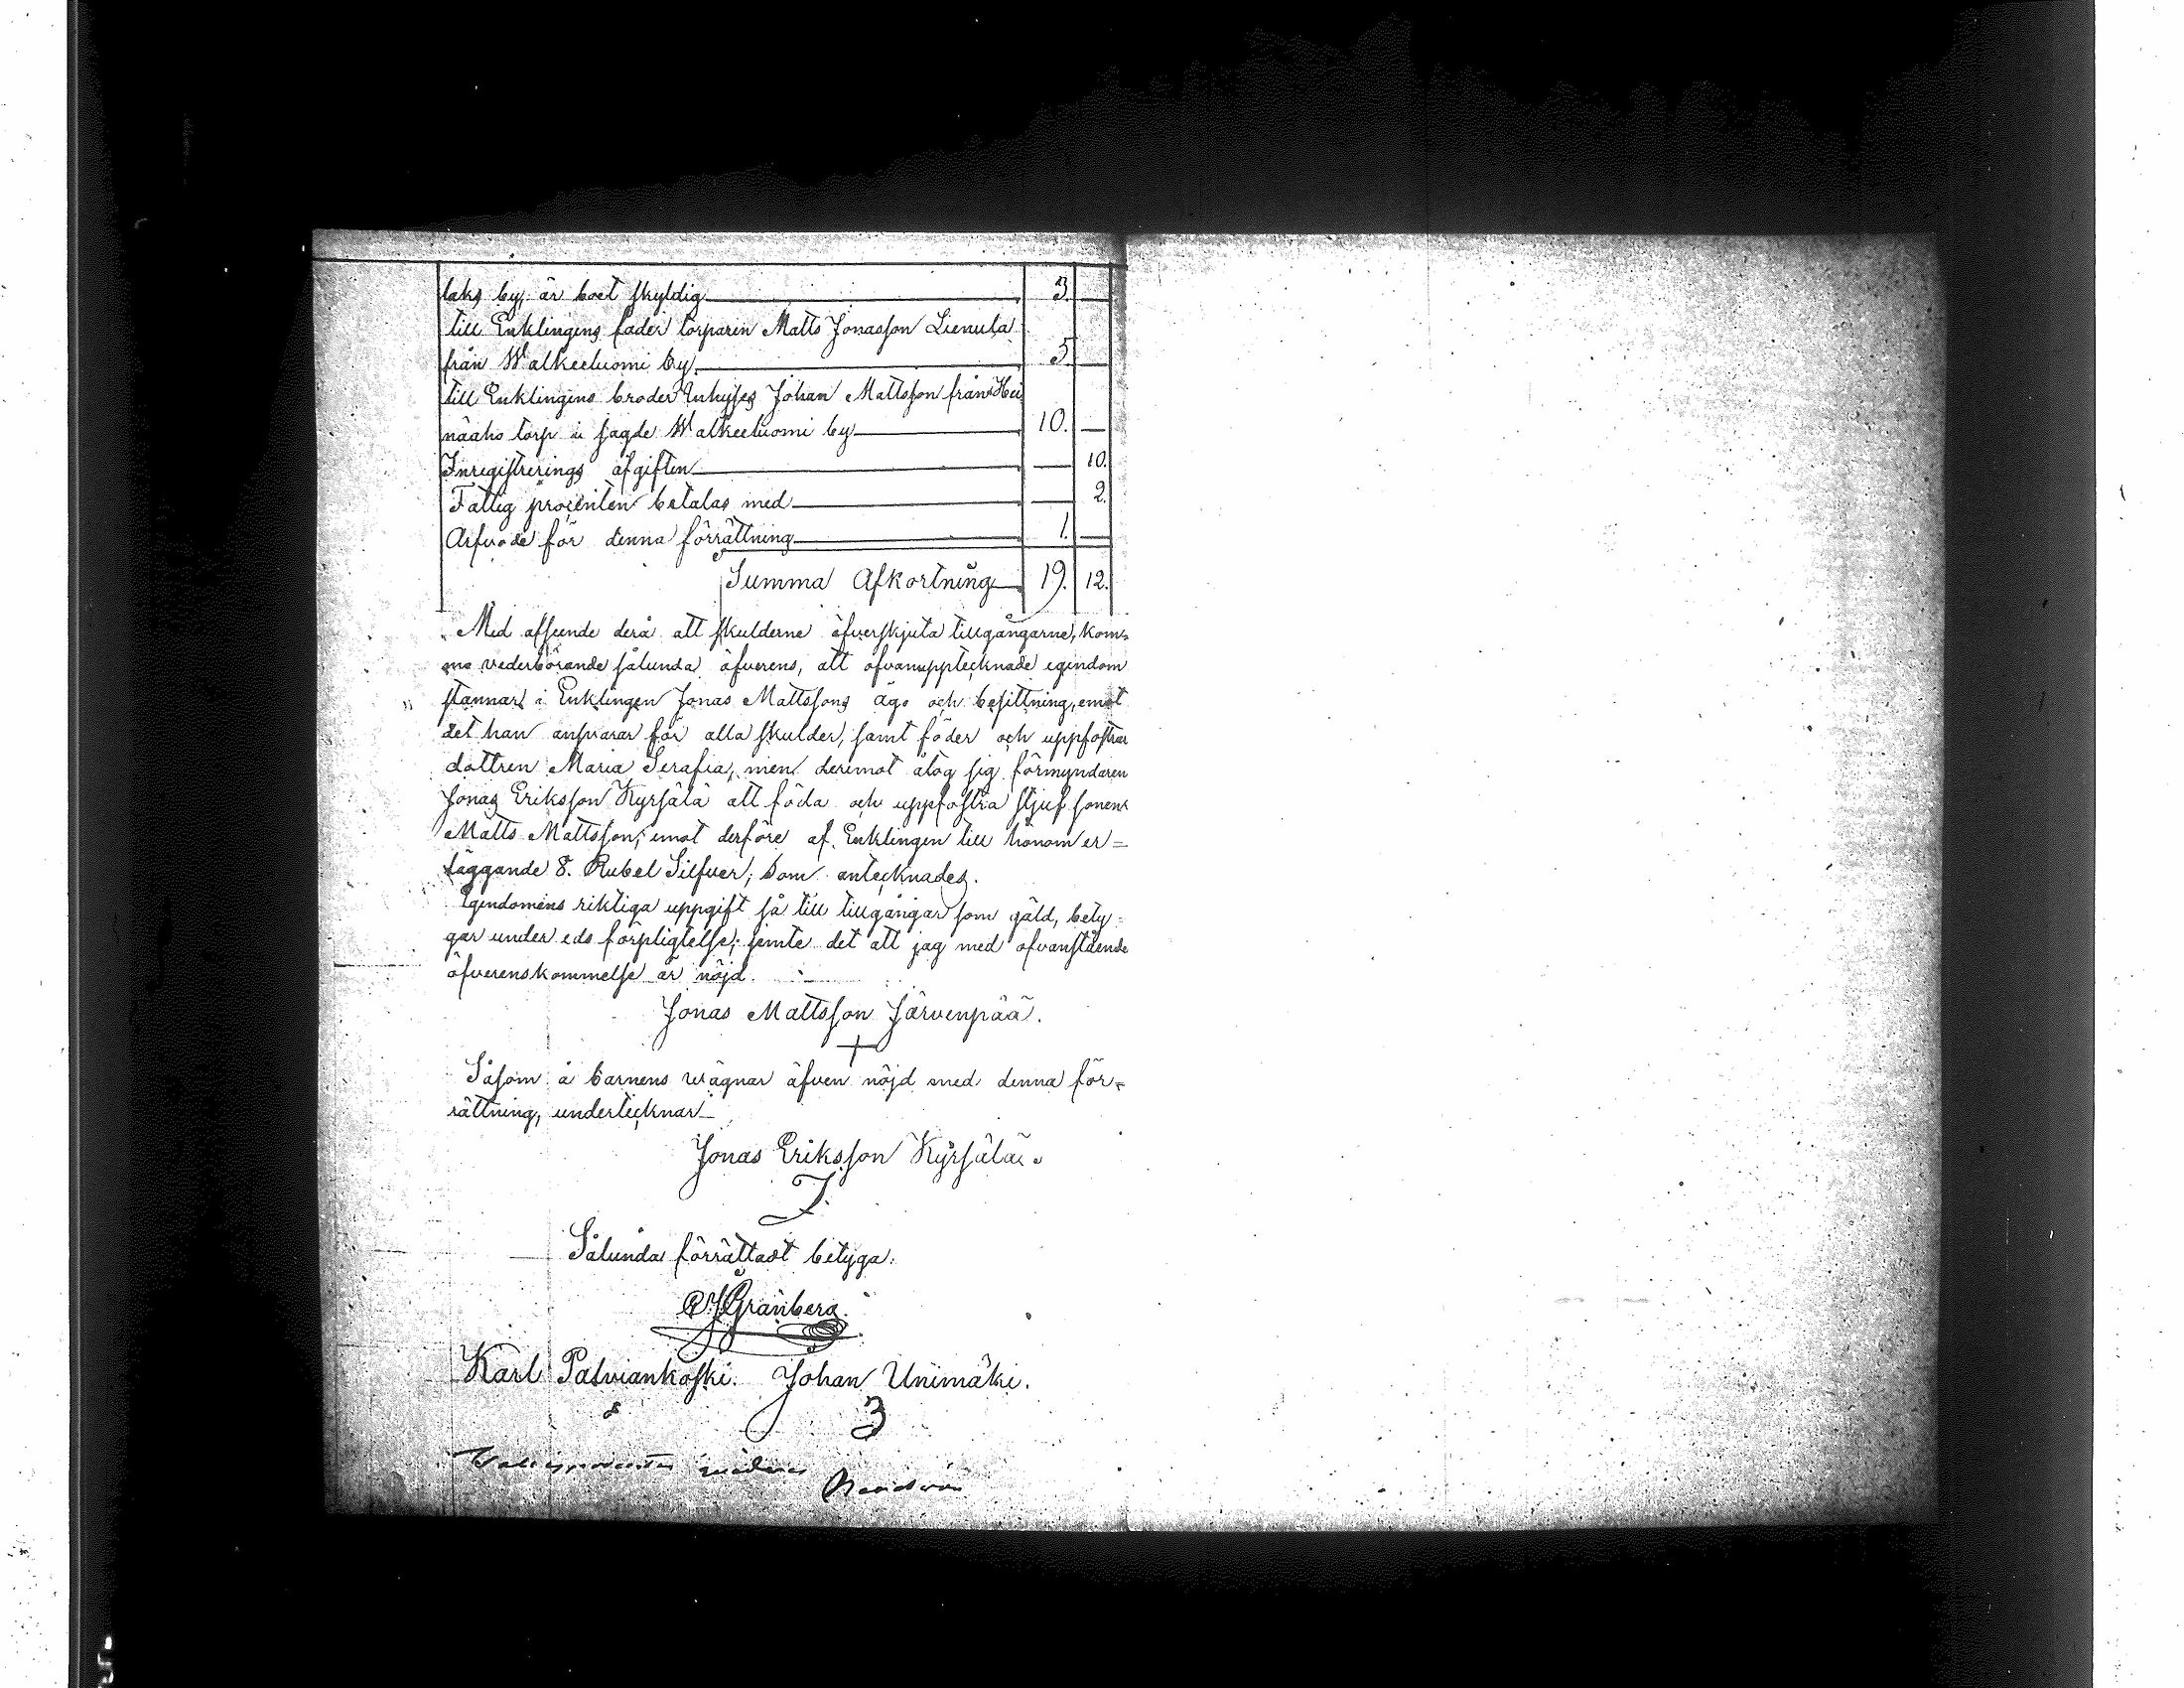 laks by, är boet skyldig 3. —
till Enklingens fader torparen Matts Jonasson Lienula
från Walkeeluomi by 5. —
till Enklingens broder Inhyses Johan Mattsson från Hei
näaho torp i sagde Walkeeluomi by 10. —
Inregistrerings afgiften — 10.
Fattig procenten betalas med — 2.
Arfvode för denna förrättning 1. —
Summa Afkortning 19. 12.
Med afseende derå att skulderne öfverskjuta tillgångarne, kom-
ma vederbörande sålunda öfverens, att ofvanupptecknade egendom
stannar i Enklingen Jonas Mattssons ägo och besittning, emot
det han ansvarar för alla skulder, samt föder och uppfostrar
dottren Maria Serafia, men deremot åtog sig förmyndaren
Jonas Eriksson Kyrsälä att föda och uppfostra stjuf sonen
Matts Mattsson, emot derföre af Enklingen till honom er=
läggande 8. Rubel Silfver; som antecknades.
Egendomens riktiga uppgift så till tillgångar som gäld, bety=
gar under eds förpligtelse; jemte det att jag med ofvanstående
öfverenskommelse är nöjd.
Jonas Mattsson Järvenpää.
Såsom å barnens wägnar äfven nöjd med denna för-
rättning, undertecknar
Jonas Eriksson Kyrsälä.
Sålunda förrättadt betyga:
Granberg.
Karl Palviankoski. Johan Unimäki.